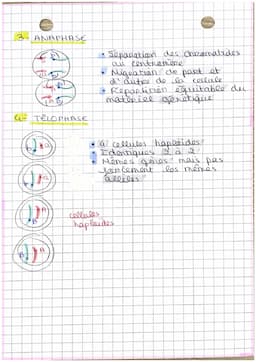 3- ANAPHASE
• Séparation des chromatides
au centromère
• Migration de part et
d'autre de la cellule
• Répartition équitable du
matériel génétique
4- TÉLOPHASE
• 4 cellules haploïdes
• Identiques 2 à 2
• Mêmes gènes mais pas
forcément les mêmes
allèles
cellules
haploïdes